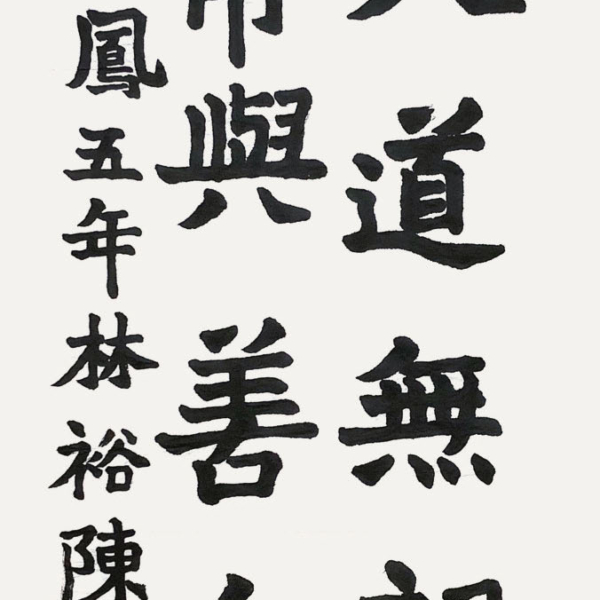 道無
與善
鳳五年林裕陳